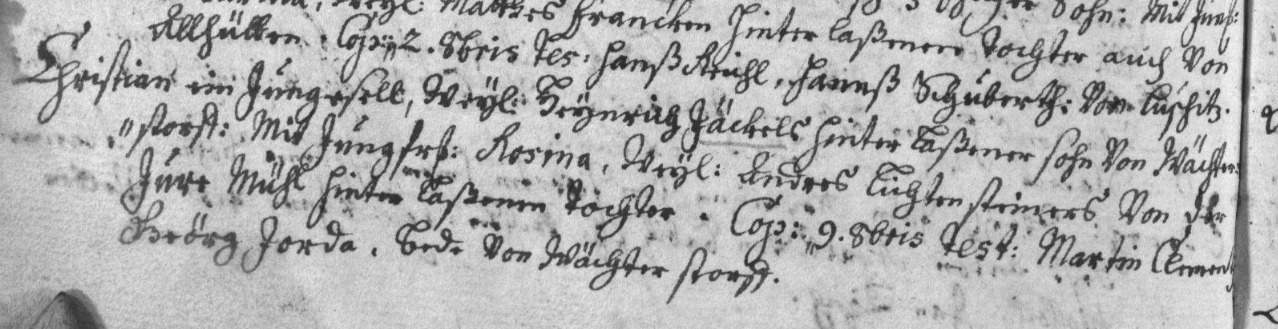 Weyl: Mattes Francken hinter laßenen Sohn: Mit Jungf:
Allhütten. Cop: 2. 8bris Tes: Hanß Reichl, Hannß Schuberth: Von Luschitz.
hinter laßenen Tochter auch Von
Christian ein Junggesell, Weyl: Heynrich Jäckels hinter laßener sohn Von Wächter
storff: Mit Jungfr: Rosina, Weyl: Andres Lichtensteiners Von der
Jure Mühl hinter laßenen Tochter. Cop: 9. 8bris Test: Martin Clement
Geörg Jorda. bede Von Wächter storff.